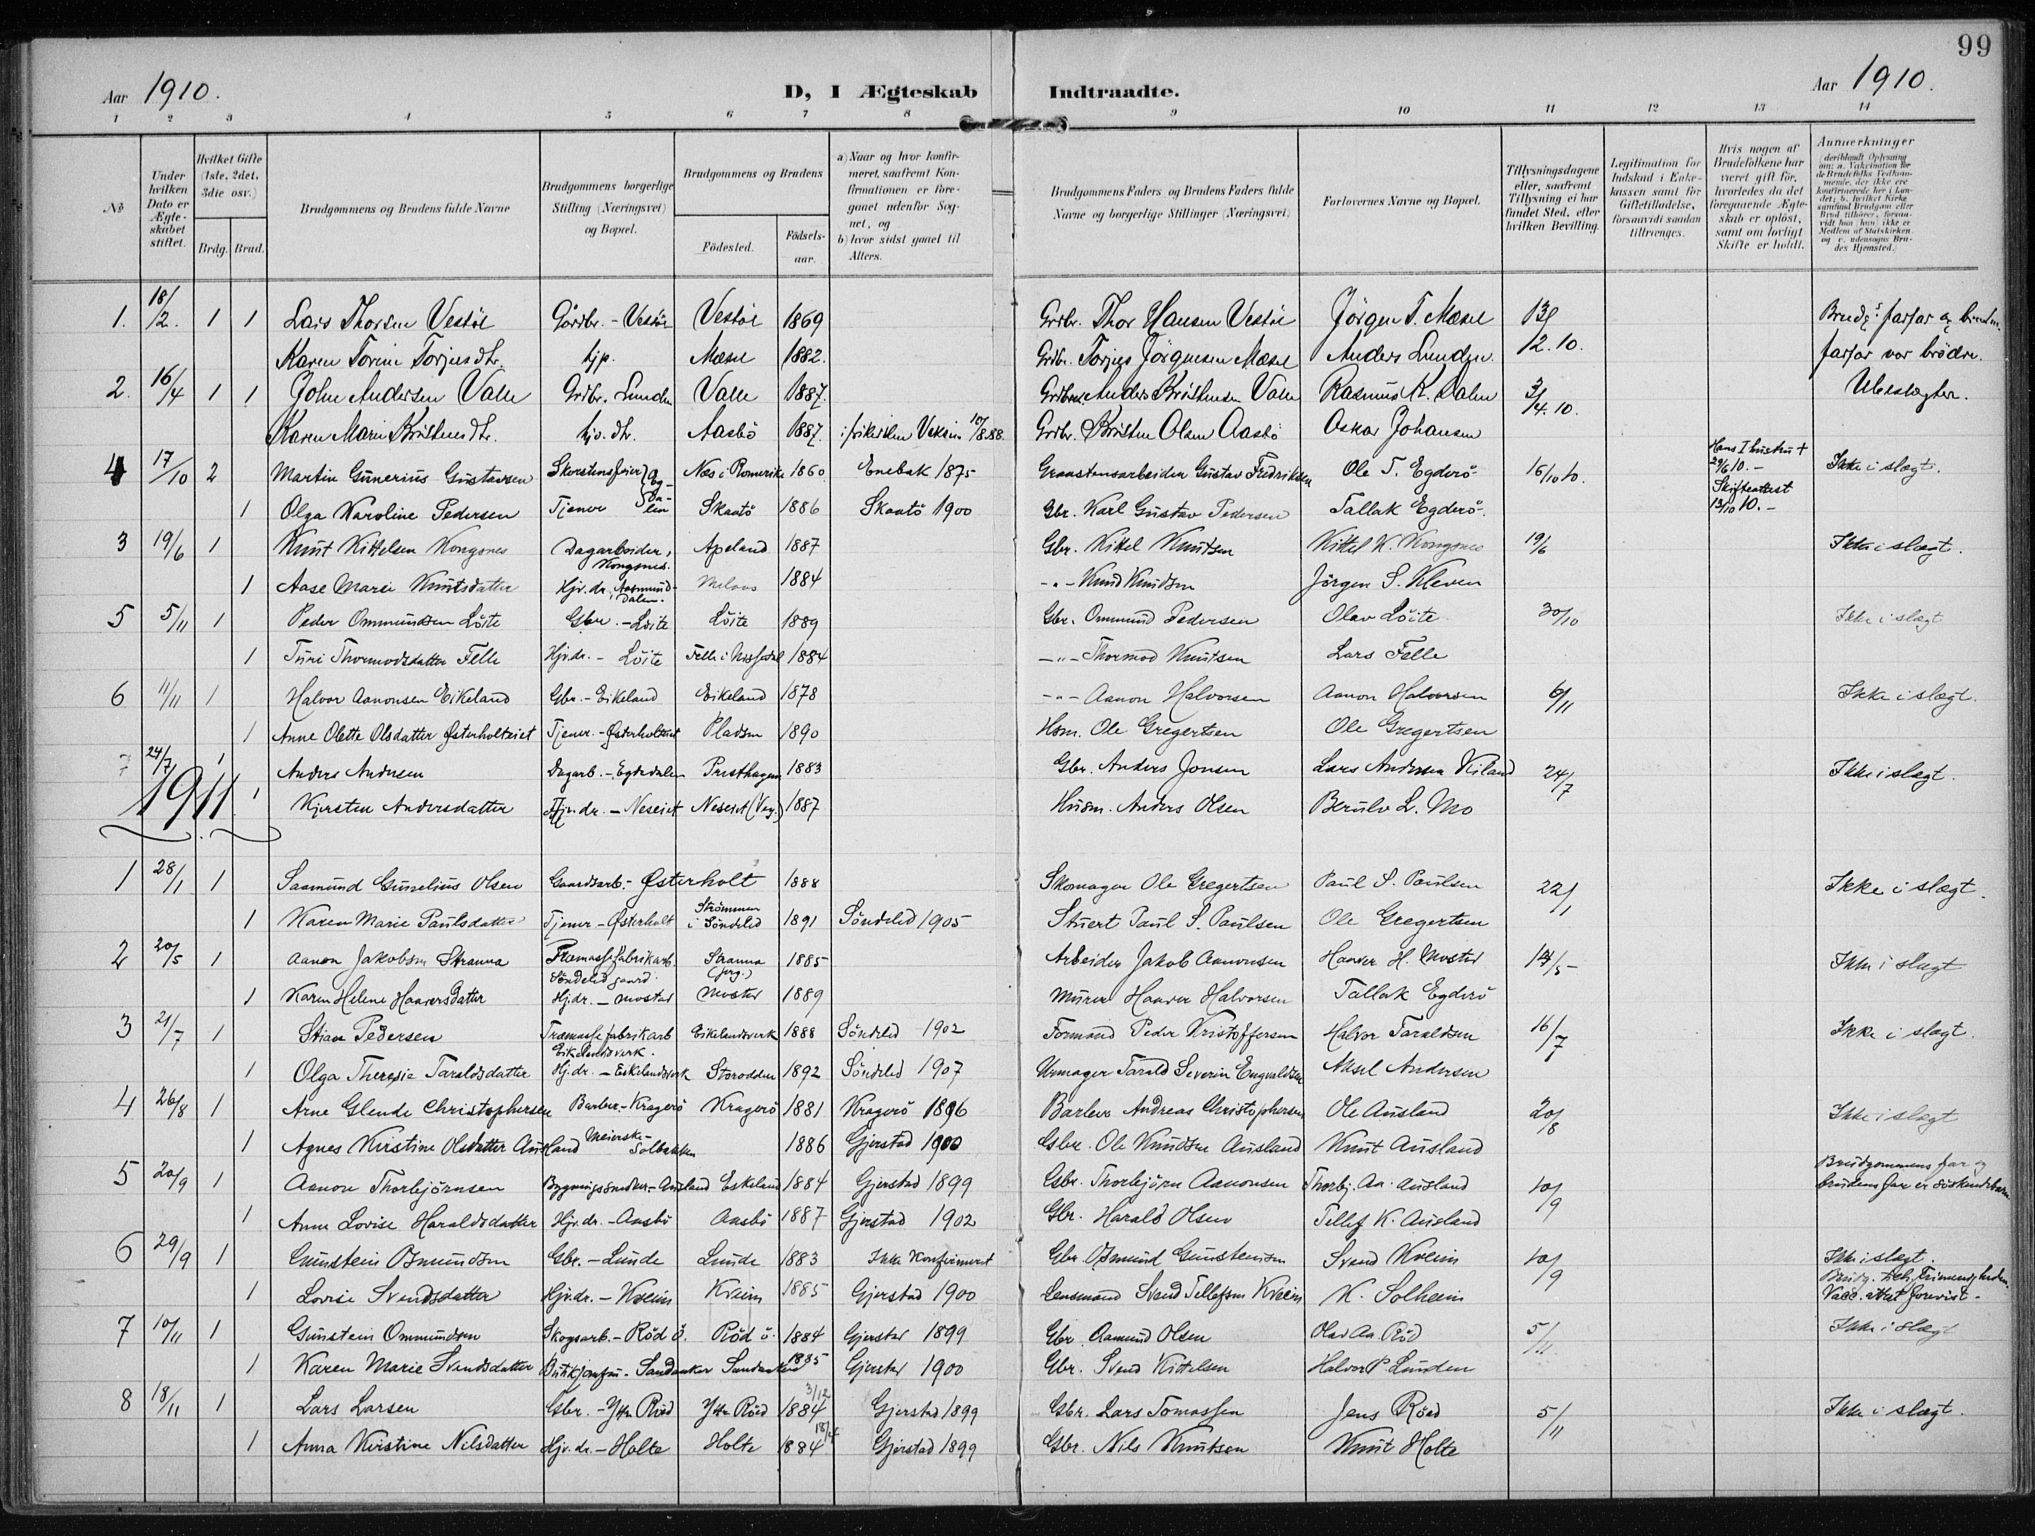 99
Aar 1910. D, I Ægteskab Indtraadte. Aar 1910.
1 2 3 4 5 6 7 8 9 10 11 12 13 14
No
Under hvilken Dato er Ægteskabet stiftet.
Hvilket Gifte (1ste, 2det, 3die osv.)
Brdg. Brud.
Brudgommens og Brudens fulde Navne
Brudgommens borgerlige Stilling (Næringsvei) og Bopæl.
Brudgommens og Brudens
Födested. Födselsaar.
a) Naar og hvor konfirmeret, saafremt Konfirmationen er foregaaet udenfor Sognet, og
b) hvor sidst gaaet til Alters.
Brudgommens Faders og Brudens Faders fulde Navne og borgerlige Stillinger (Næringsvei)
Forlovernes Navne og Bopæl.
Tillysningsdagene eller, saafremt Tillysning ei har fundet Sted, efter hvilken Bevilling.
Legitimation for Indskud i Enkekassen samt for Giftetilladelse, forsaavidt saadan tiltrænges.
Hvis nogen af Brudefolkene har været gift för, hvorledes da det foregaaende Ægteskab er oplöst, samt om lovligt Skifte er holdt.
Anmerkninger
1. 18/2. 1 1 Lars Thorsen Vestøl Gårdbr. - Vestøl Vestøl 1869 Grdbr. Thor Hansen Vestøl Jörgen T. Mæsel 13/2.10. Brudg.s farfar og brudens
Karen Torine Torjusdtr. hjp. Mæsel 1882. Grdbr. Torjus Jörgensen Mæsel Anders Lunden farfar var brödre.
2. 16/4 1 1 John Andersen Valle Grdbr. Lunden Valle 1887. Anders Kristensen Valle Rasmus K. Dalen 3/4.10. Ubeslægtet.
Karen Marie Kristensdtr. hjv. dtr. Aasbö 1887. Grdbr. Kristen Olsen Aasbö Oskar Johansen
4 17/10 2 Martin Gunerius Gustavsen Skorstensfeier Næs i Romerike 1860 Enebak 1875 Graastensarbeider Gustav Fredriksen Ole T. Egderö 16/10 10. Hans I hustru + 29/6 10. - Skifteattest 13/10 10. - Ikke i slægt.
1 Olga Karoline Pedersen Tjener Skaatö 1886 Skaatö 1900 Gbr. Karl Gustav Pedersen Tallak Egderö
3 19/6 1 Knut Kittelsen Kongsnes Dagarbeider, Kongsnes. Apeland 1887 Gbr. Kittel Knutsen Kittel K. Kongsnes 19/6 Ikke i slægt.
1 Aase Marie Knutsdatter Hjv. dr. Aasmunddalen. 1884 -"- Knud Knudsen Jörgen S. Kleven
5 5/11 1 Peder Ommundsen Löite Gbr. - Löite Löite 1889 Gbr. Ommund Pedersen Olav Löite 30/10 Ikke i slægt
1 Turi Thormodsdatter Felle Hjv. dr. - Löite Felle i Nissedal 1884 -"- Thormod Knutsen Lars Felle
6 11/11 1 Halvor Aanonsen Eikeland Gbr. - Eikeland Eikeland 1878 -"- Aanon Halvorsen Aanon Halvorsen 6/11 Ikke i slægt.
1 Anne Olette Olsdatter Østerholteiet Tjener. - Østerholteiet Pladsen 1890 Hsm. Ole Gregertsen Ole Gregertsen
7 24/7 1 Anders Andersen Dagarb. - Egdedalen Presthagen 1883 Gbr. Anders Jonsen Lars Andersen Kiland 24/7 Ikke i slægt.
1 Kjersten Andersdatter Hjv. dr. - Neseiet Neseiet (Veg.) 1887 Husm. Anders Olsen Berulv L. Mo
1911.
1 28/1 1 Saamund Gunelius Olsen Gaardsarb. - Østerholt 1888 Skomager Ole Gregertsen Paul S. Paulsen 22/1 Ikke i slægt.
1 Karen Marie Paulsdatter Tjener - Østerholt Strömmen i Söndeled 1891 Söndeled 1905 Stuert Paul S. Paulsen Ole Gregertsen
2 20/5 1 Aanon Jakobsen Stranna Træmassefabrikarb. Söndeled gaard. Stranna 1885 Arbeider Jakob Aanonsen Haaver H. Mostad 14/5 Ikke i slægt
1 Karen Helene Haaversdatter Hj.dr. - Mostad Mostad 1889 Murer Haaver Halvorsen Tallak Egderö
3 21/7 1 Stian Pedersen Træmassefabrikarb Eikelandsverk. Eikelandsverk 1888 Söndeled 1902 Formand Peder Kristoffersen Halvor Taraldsen 16/7 Ikke i slægt.
1 Olga Theresie Taraldsdatter Hj.dr. - Eikelandsverk Storodden 1892 Söndeled 1907 Urmager Tarald Severin Engvaldsen Aksel Andersen
4 26/8 1 Arne Glende Christophersen Barber - Kragerö Kragerö 1881 Kragerö 1896 Barber Andreas Christophersen Ole Ausland 20/8 Ikke i slægt
1 Agnes Kirstine Olsdatter Ausland Meierske - Solbakken 1886 Gjerstad 1900 Gbr. Ole Knudsen Ausland Knut Ausland
5 20/9 1 Aanon Thorbjörnsen Bygningssnedker - Ausland Eskeland 1884 Gjerstad 1899 Gbr. Thorbjörn Aanonsen Thorbj. Aa. Ausland 10/9 Brudgommens far og brudens far er söskendebarn
1 Anne Lovise Haraldsdatter Hjv. dr. - Aasbö Aasbö 1887 Gjerstad 1902 Gbr. Harald Olsen Tellef K. Ausland
6 29/9 1 Gunstein Osmundsen Gbr. - Lunde Lunde 1883 Ikke konfirmert Gbr. Osmund Gunsteinsen Svend Kveim 10/9 Ikke i slægt.
1 Lovise Svendsdatter Hjv.dr. - Kveim Kveim 1885 Gjerstad 1900 Lensmand Svend Tellefsen Kveim K. Solheim Vacc. attest forevist -
7 10/11 1 Gunstein Ommundsen Skogsarb. - Röd ö. Röd ö. 1884 Gjerstad 1899 Gbr. Aamund Olsen Olav Aa. Röd 5/11. Ikke i slægt
1 Karen Marie Svendsdatter Butikjomfru - Sandaaker Sandaaker 1885 Gjerstad 1900 Gbr. Svend Kittelsen Halvor P. Lunden
8 18/11 1 Lars Larsen Gbr. - Ytre Röed Ytre Röed 3/12 1884 Gjerstad 1899 Gbr. Lars Tomassen Jens Röed 5/11 Ikke i slægt.
1 Anna Kirstine Nilsdatter Hjv. dr. - Holte Holte 18/4 1884 Gjerstad 1899 Gbr. Nils Knutsen Knut Holte